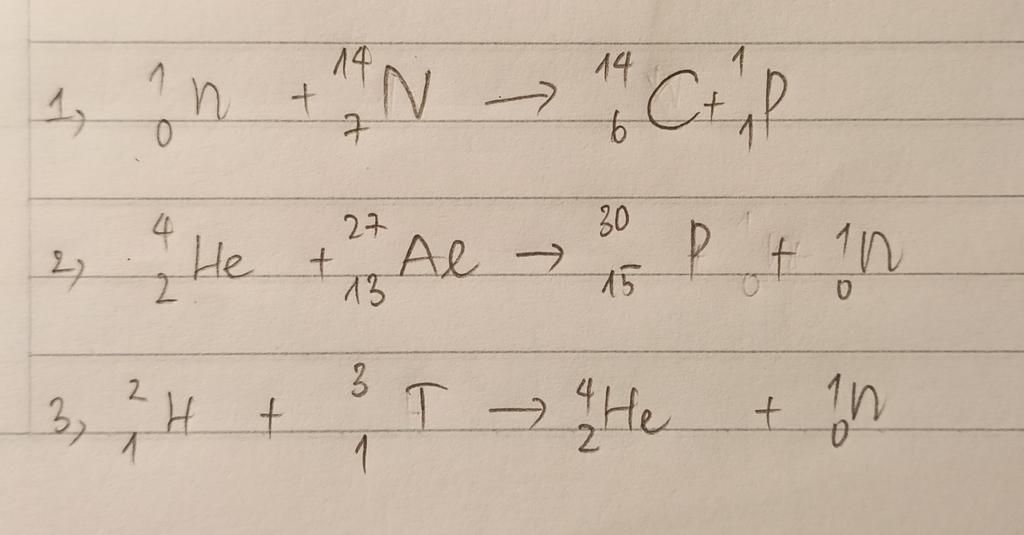 1, ¹₀n + ¹⁴₇N → ¹⁴₆C + ¹₁P
2, ⁴₂He + ²⁷₁₃Al → ³⁰₁₅P + ¹₀n
3, ²₁H + ³₁T → ⁴₂He + ¹₀n